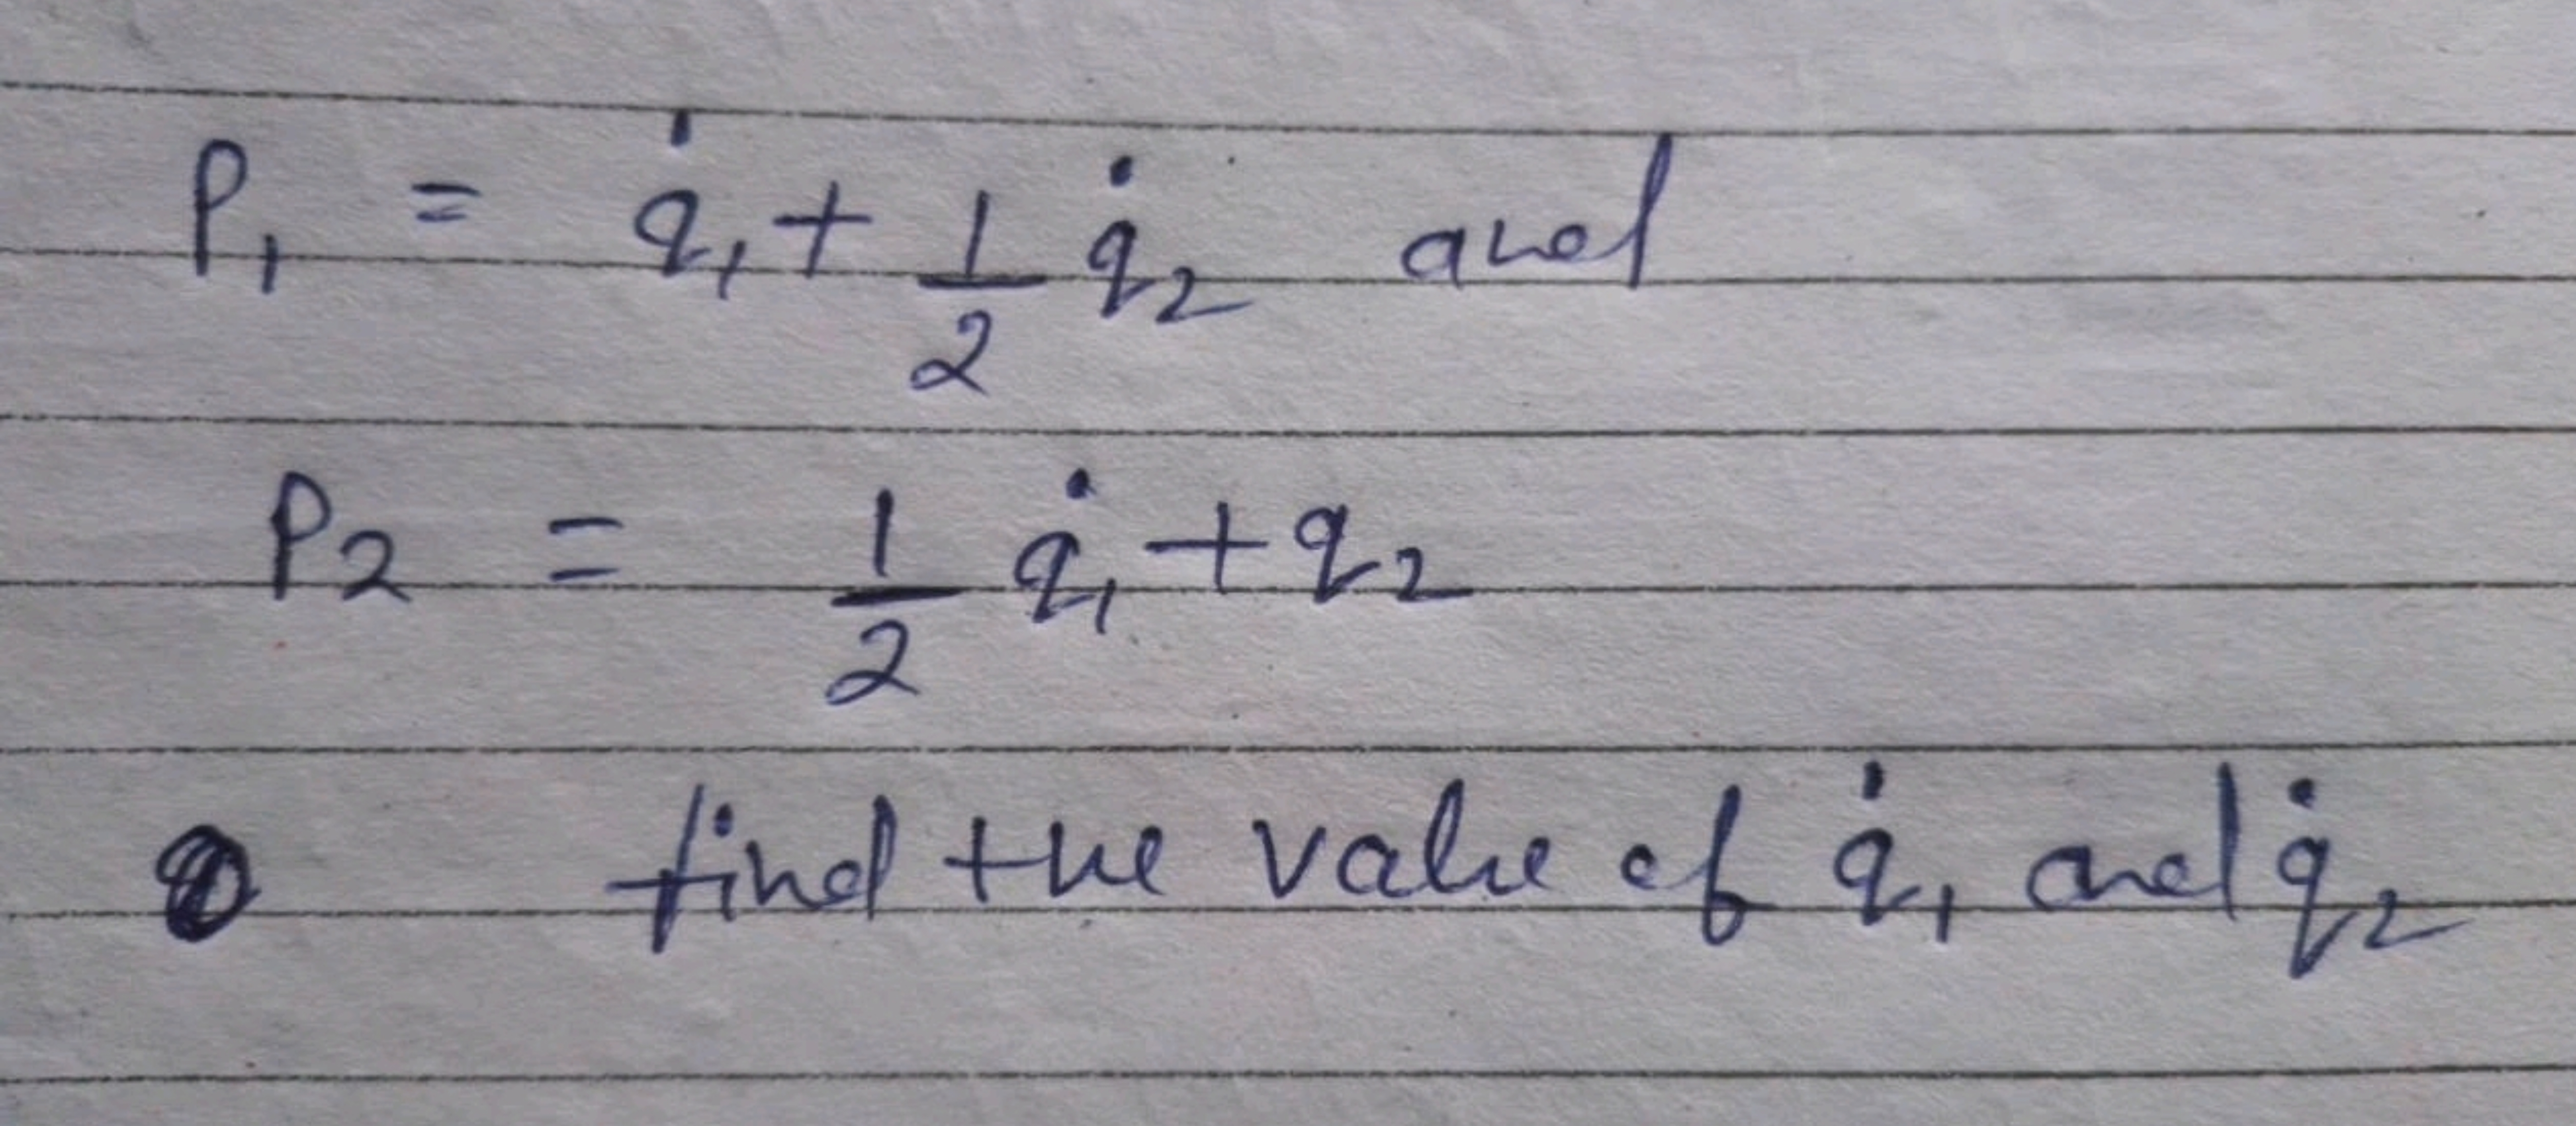 P₁ = q̇₁ + 1/2 q̇₂ and
P₂ = 1/2 q̇₁ + q₂
find the value of q̇₁ and q̇₂